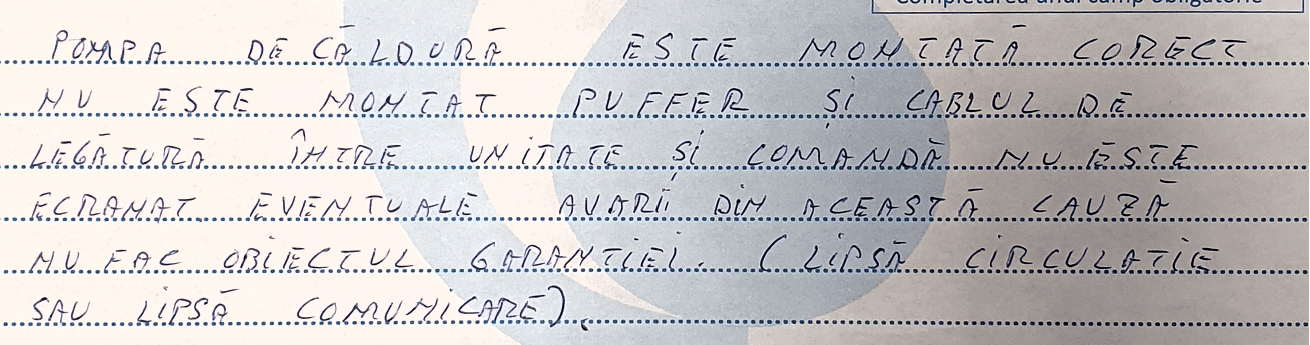 Completarea unui câmp obligatoriu
POMPA DE CĂLDURĂ ESTE MONTATĂ CORECT
NU ESTE MONTAT PUFFER ȘI CABLUL DE
LEGĂTURĂ ÎNTRE UNITATE ȘI COMANDĂ NU ESTE
ECRANAT. EVENTUALE AVARII DIN ACEASTĂ CAUZĂ
NU FAC OBIECTUL GARANTIEI. (LIPSĂ CIRCULATIE
SAU LIPSĂ COMUNICARE).